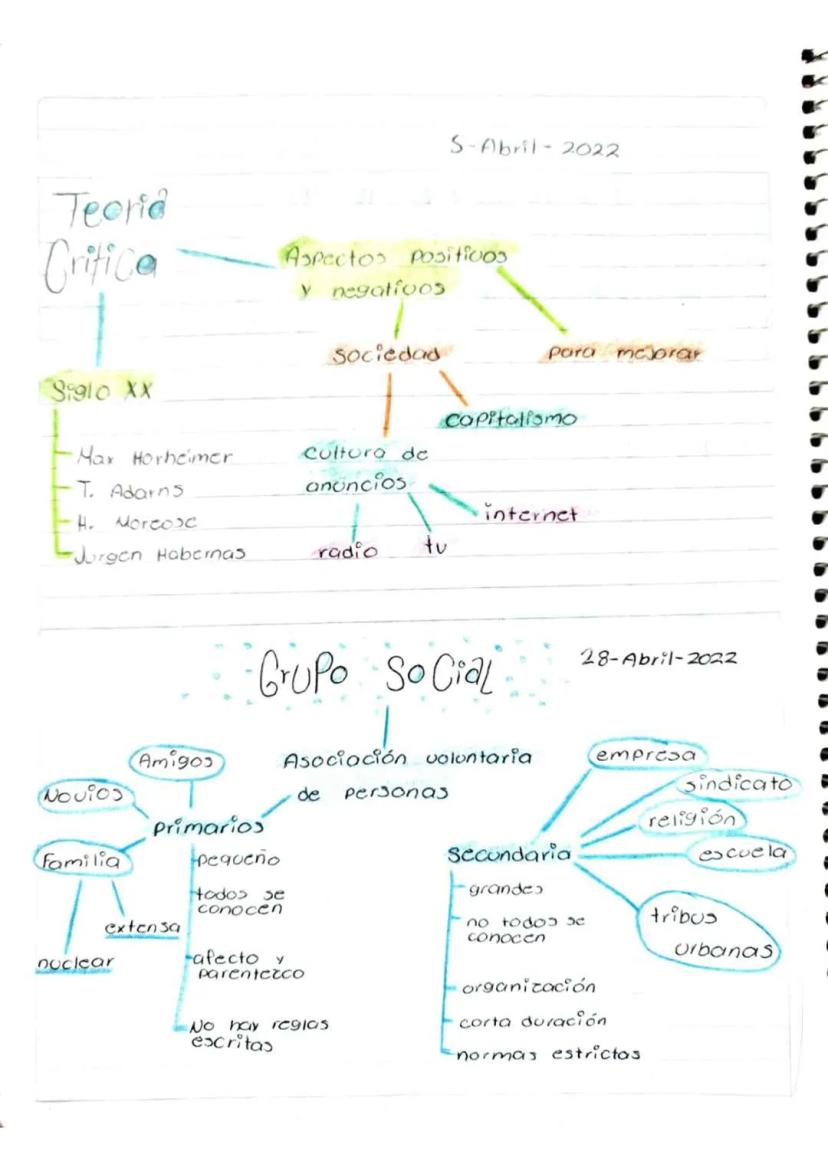 5-Abril-2022
Teoria
Critica
Aspectos positivos
y negativos
sociedad
para mejorar
Siglo XX
capitalismo
Max Horheimer
cultura de
T. Adarns
anuncios
internet
H. Morcose
radio
tv
Jurgen Habernas
Grupo Social
28-Abril-2022
Asociación voluntaria
de personas
Amigos
Novios
primarios
Familia
extensa
nuclear
pequeño
todos se
conocen
afecto y
parentezco
No hay reglas
escritas
empresa
sindicato
religión
secundaria
escuela
tribus
urbanas
grandes
no todos se
conocen
organización
corta duración
normas estrictas